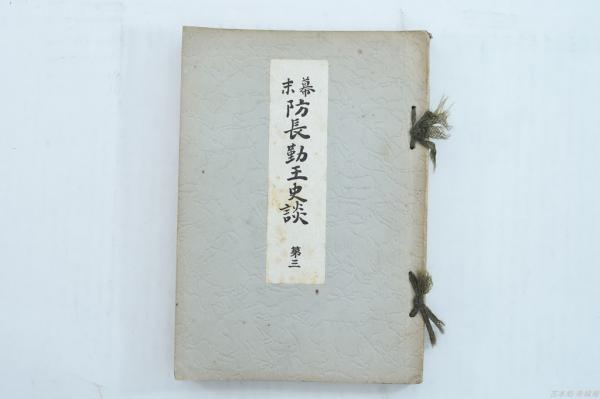 幕末防長勤王史談
第三